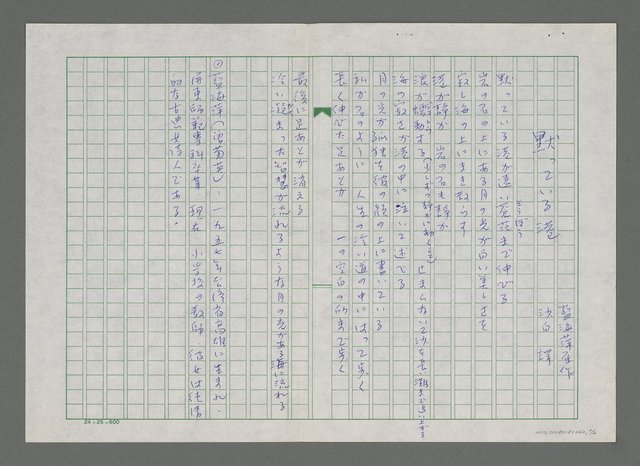 黙っている港
藍海萍原作
沙白 譯
黙っている港が遠い蒼茫まで伸びる
そうぼう
岩の石の上にある月の光が白い美しさを
寂し海の上にまき散らす
港が静か 岩の石も静か
浪が蠕動する(少しずつ静かに動くこと)止まらないで沙を長い灘まで追い上がる
海の寂さが港の中に泣いて述てる
月の光が孤独を彼の顔の上に書いている
私が石のように 人生の冷い道の中にはって歩く
長く伸びた足あとが 一つの空白の所まで歩く
最後に足あとが消える
冷い凝まった智慧が流れるような月の光がある海に流れる
藍海萍(
):一九五七年台湾省高雄に生まれ.
屏東師範専科卒業 現在 小学校の教師 彼女は純情
的な古典女詩人である.
24×25=600